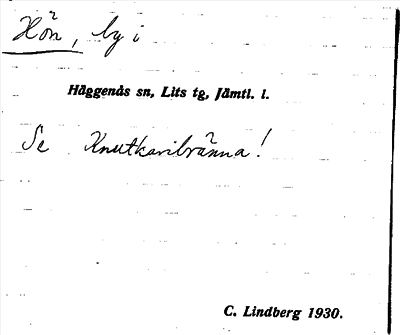 Hön, by i
Häggenås sn, Lits tg, Jämtl. l.
Se Knutkaribränna!
C. Lindberg 1930.